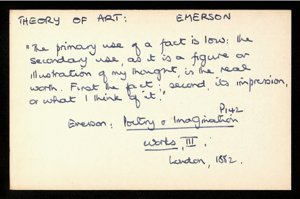 THEORY OF ART: EMERSON
"The primary use of a fact is low: the
secondary use, as it is a figure or
illustration of my thought, is the real
worth. First the fact; second, its impression,
or what I think of it."
P142
Emerson: Poetry & Imagination
Works, III,
London, 1882.